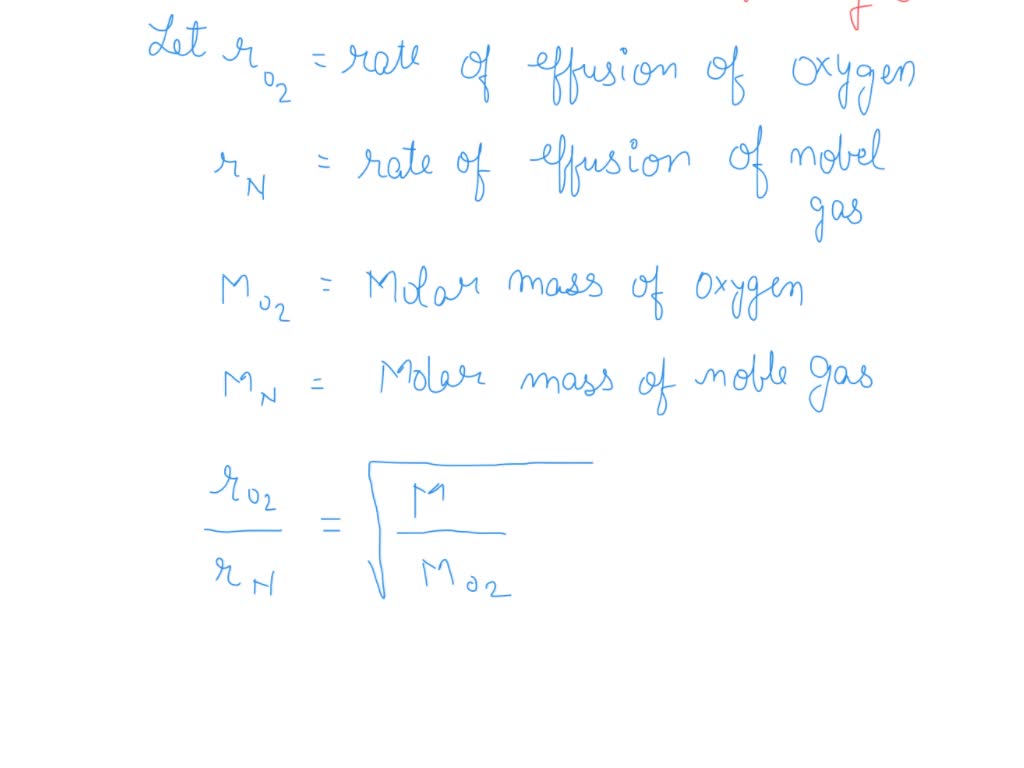 Let r₀₂ = rate of effusion of oxygen
r_N = rate of effusion of nobel
gas
M_O2 = Molar mass of oxygen
M_N = Molar mass of noble gas
r_O2 / r_N = √(M / M_O2)